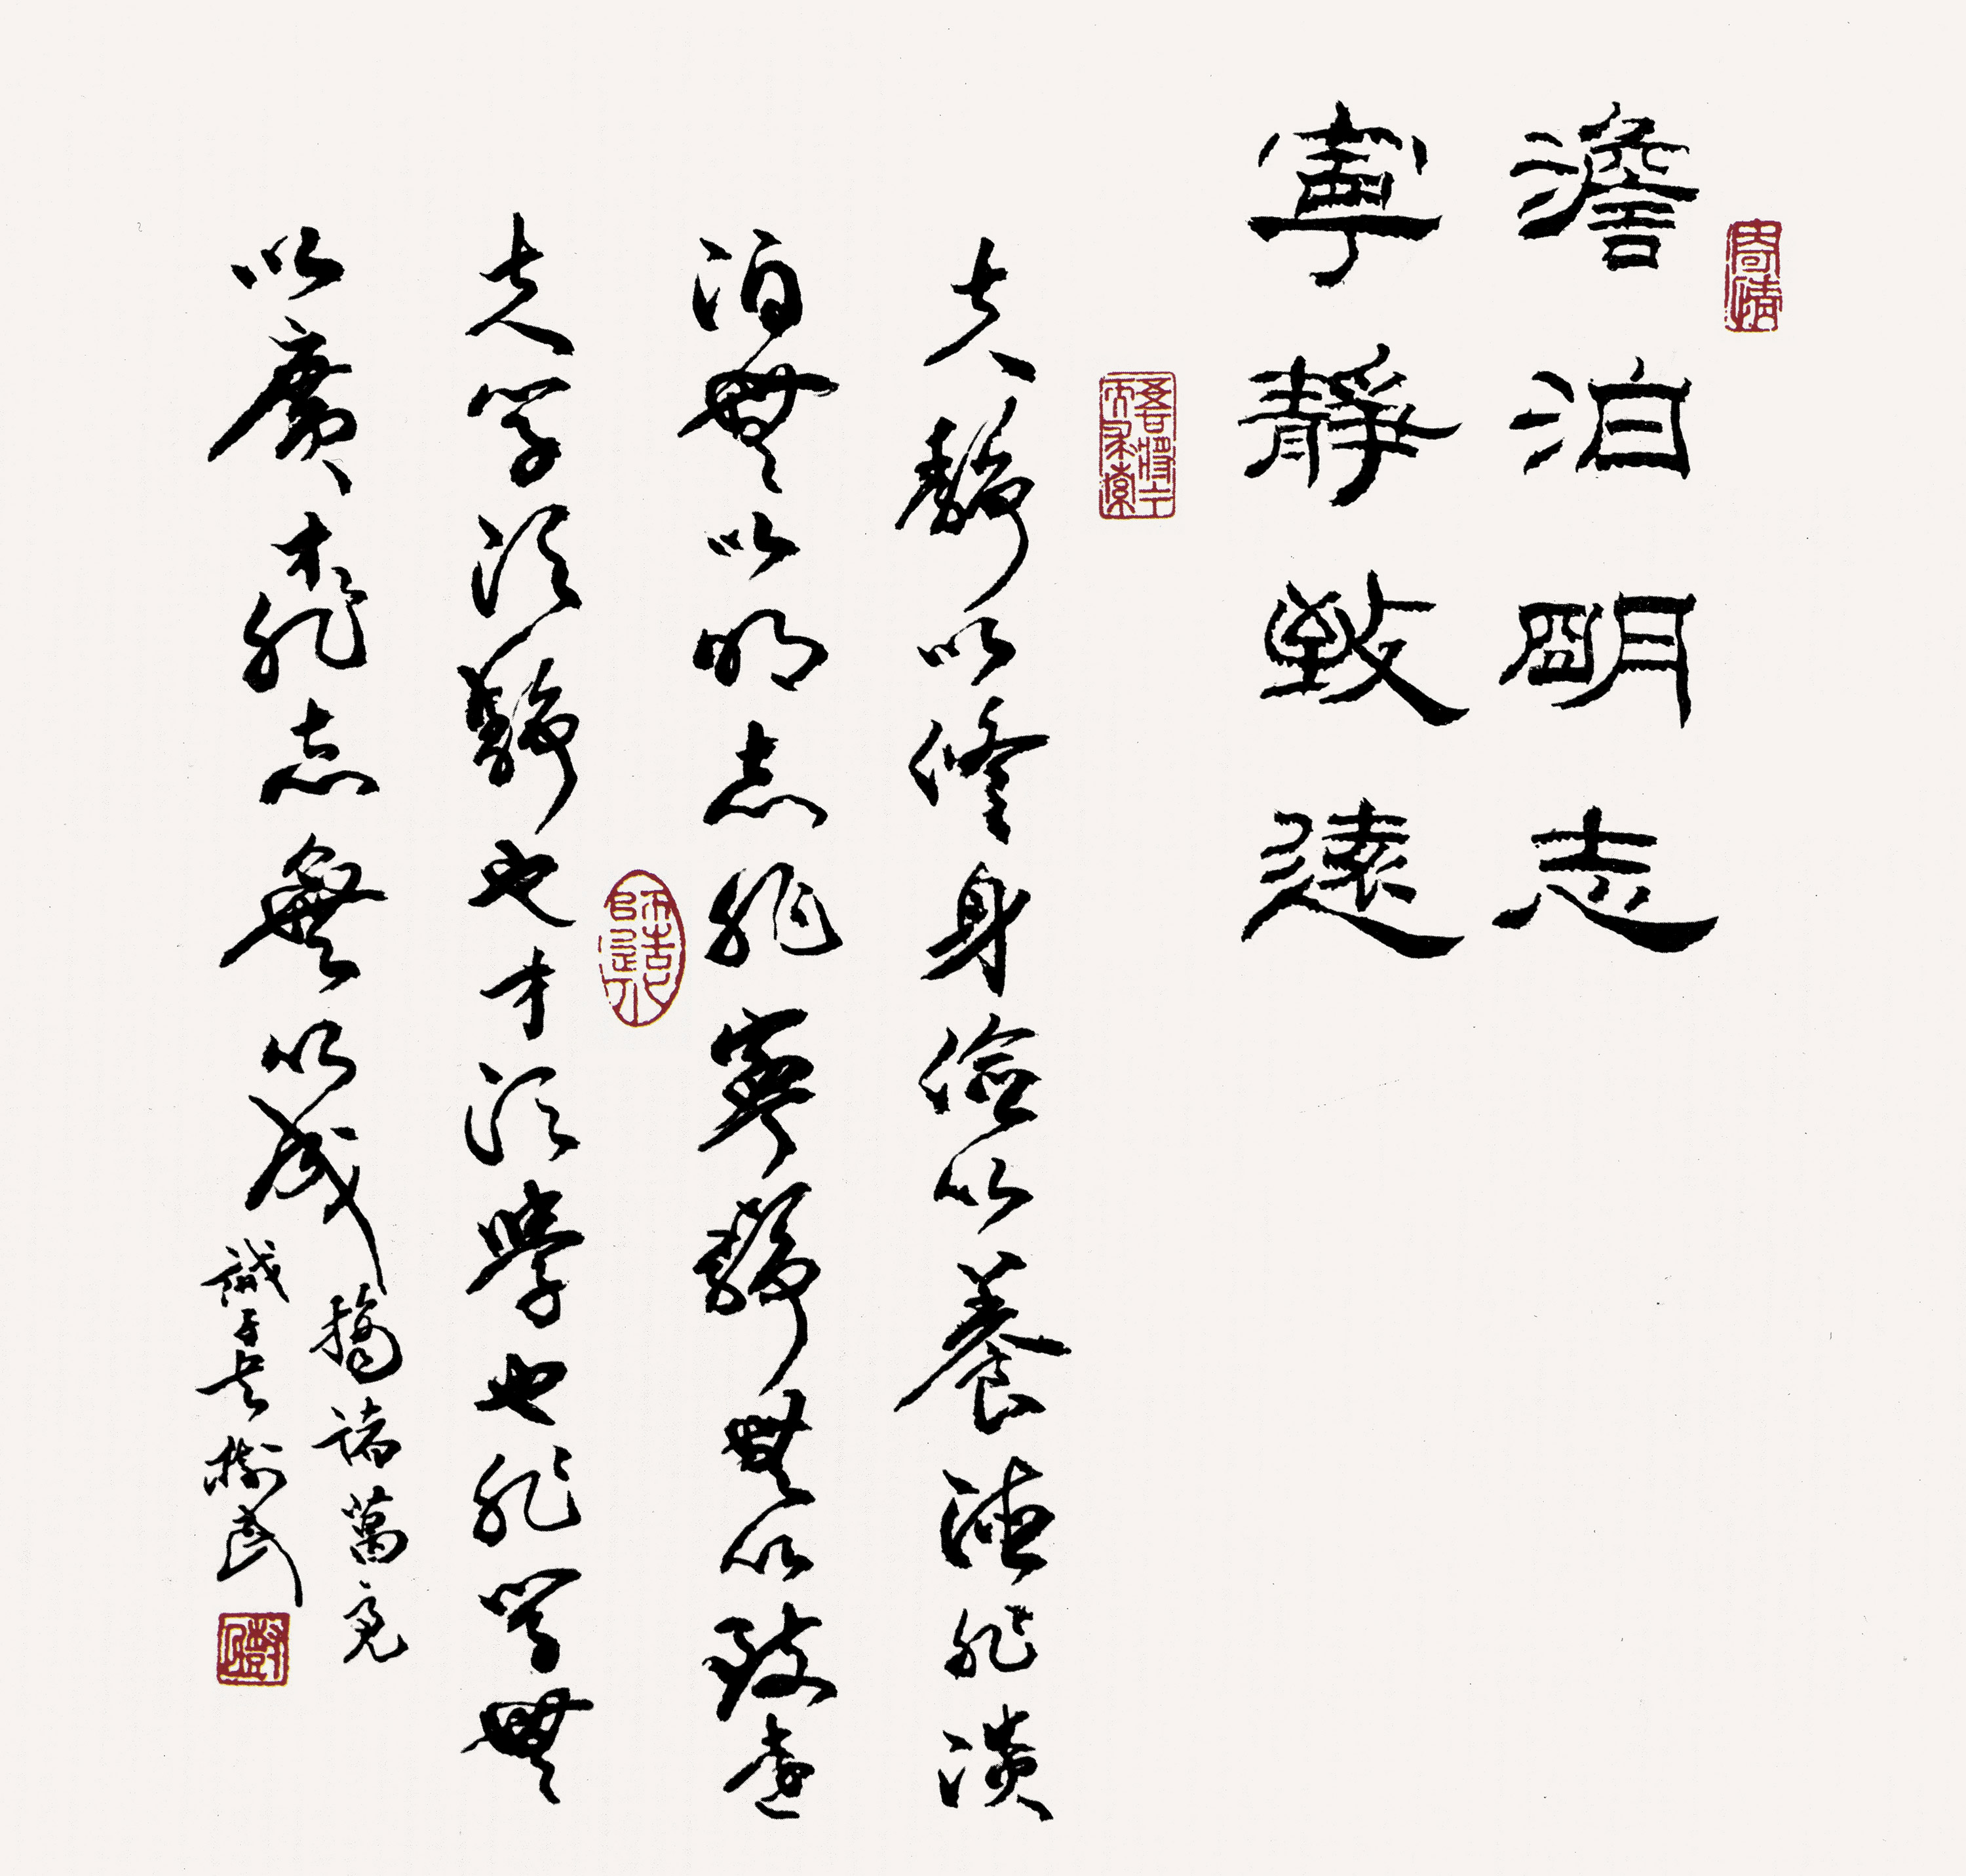 澹泊明志
寧靜致遠
夫靜以修身儉以養德非淡
泊無以明志非寧靜無以致遠
夫学須靜也才須學也非学無
以廣才非志無以成
摘諸葛亮
誡子書
寄情